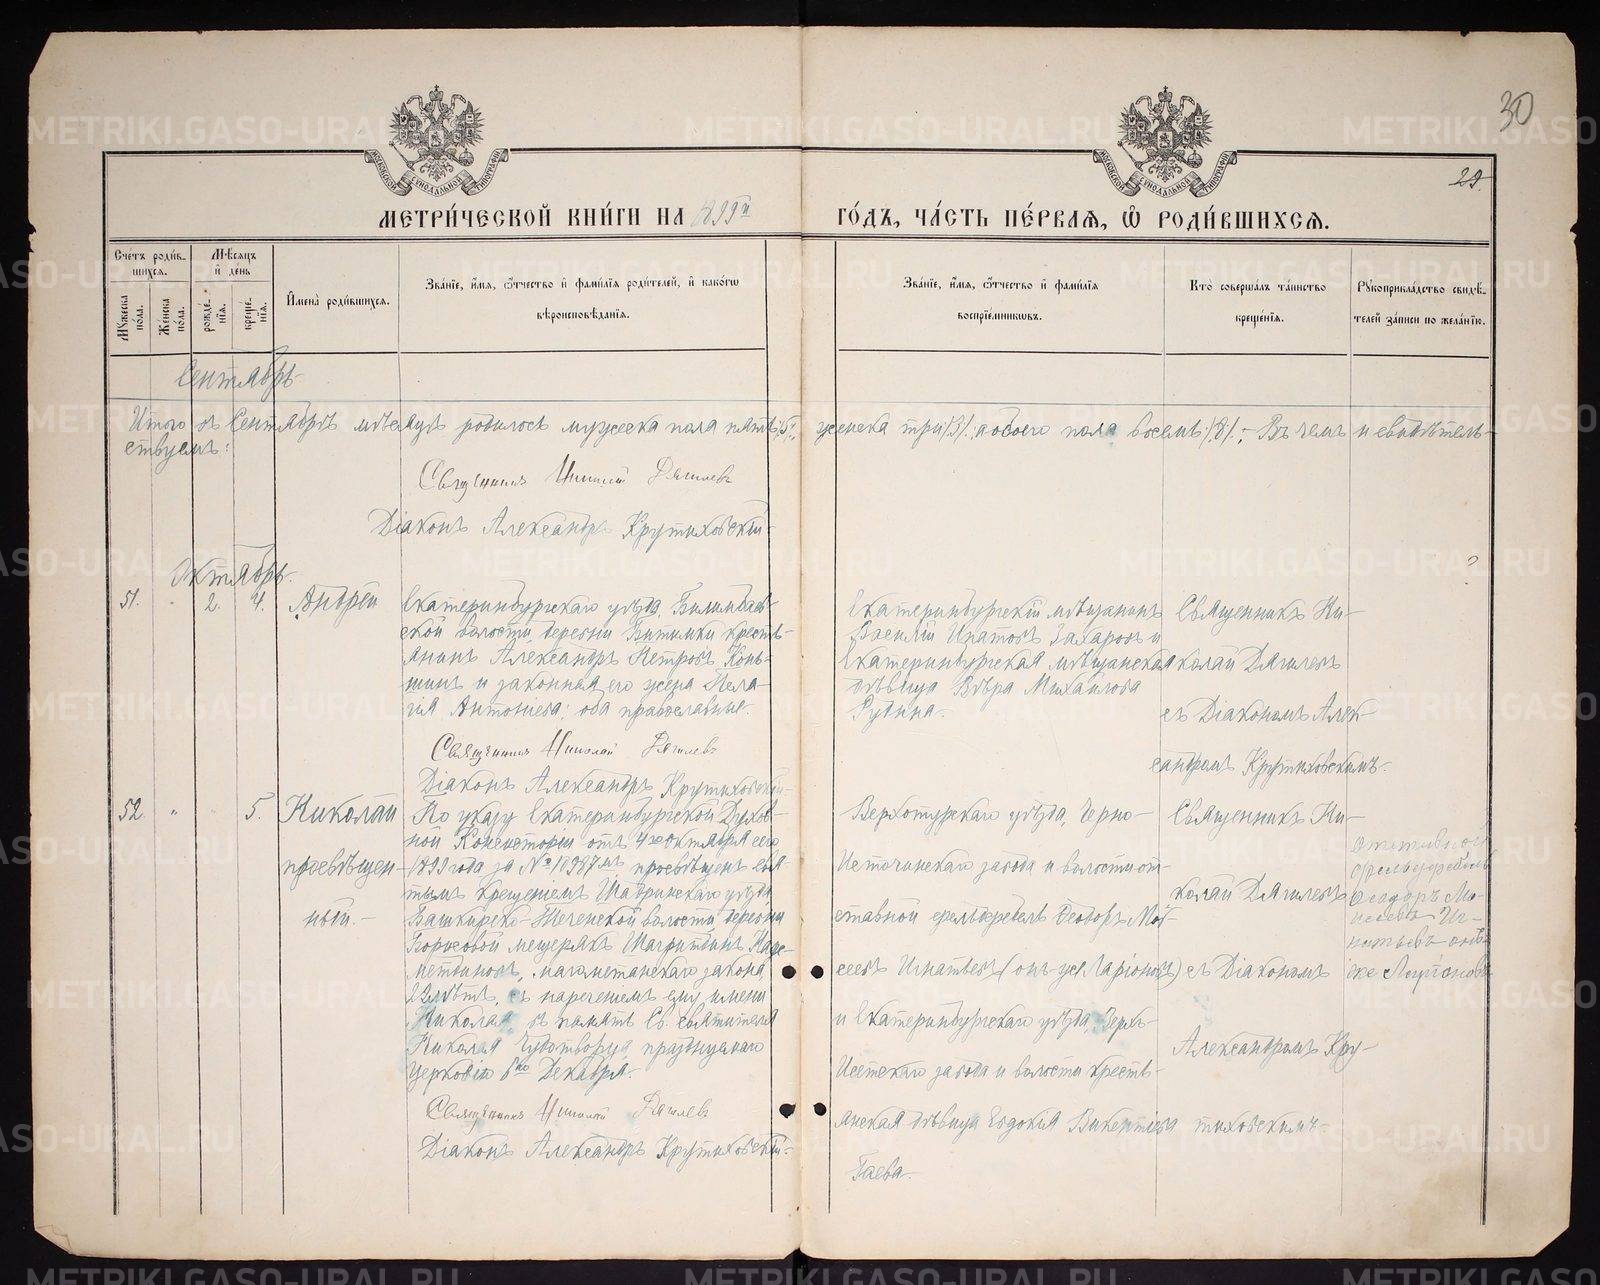 30
29.
МЕТРИ́ЧЕСКОЙ КНИ́ГИ НА 1899й ГО́ДЪ, ЧА́СТЬ ПЕ́РВАѦ, Ѡ РОДИ́ВШИХСѦ.
МОСКОВСКОЙ СѴНОДАЛЬНОЙ ТИПОГРАФІИ
МОСКОВСКОЙ СѴНОДАЛЬНОЙ ТИПОГРАФІИ
Сче́тъ роди́вшихсѧ.
Мꙋ́жеска по́ла.
Же́нска по́ла.
Мѣ́сѧцъ и҆ де́нь
рожде́нїѧ.
креще́нїѧ.
И҆мена̀ роди́вшихсѧ.
Зва́нїе, и҆́мѧ, ѻ҆́тчество и҆ фами́лїѧ роди́телей, и҆ како́гѡ
вѣроисповѣ́данїѧ.
Зва́нїе, и҆́мѧ, ѻ҆́тчество и҆ фами́лїѧ
воспрїе́мникѡвъ.
Кто̀ соверша́лъ та́инство
креще́нїѧ.
Рꙋкоприкла́дство свидѣ́-
телей за́писи по жела́нїю.
Сентябрь
Итого въ Сентябрѣ мѣсяцѣ родилось мужеска пола пять /5/, женска три /3/, а обоего пола восемь /8/. – Въ чемъ и свидѣтель-
ствуемъ:
Священникъ Николай Дягилевъ
Діаконъ Александръ Крутиховскій
Октябрь.
51. " 2. 4. Андрей
Екатеринбургскаго уѣзда, Билимбаев-
ской волости, деревни Битимки кресть-
янинъ Александръ Петровъ Конь-
шинъ и законная его жена Пела-
гія Антоніева; оба православные.
Священникъ Николай Дягилевъ
Діаконъ Александръ Крутиховскій
Екатеринбургскій мѣщанинъ
Василій Ипатовъ Захаровъ и
Екатеринбургская мѣщанская
дѣвица Вѣра Михайлова
Рудина.
Священникъ Ни-
колай Дягилевъ
съ Діакономъ Алек-
сандромъ Крутиховскимъ.
52. " 5. Николай
просвѣщен-
ный. –
По указу Екатеринбургской Духов-
ной Консисторіи отъ 4го октября сего
1899 года за № 10987мъ, просвѣщенъ свя-
тымъ крещеніемъ Шадринскаго уѣзда,
Башкирско-Теченской волости деревни
Борисовой мещерякъ Шагритдинъ
магометанскаго закона,
22 лѣтъ, съ нареченіемъ ему имени
Николая въ память Св. святителя
Николая Чудотворца, празднуемаго
церковію 6го Декабря.
Священникъ Николай Дягилевъ
Діаконъ Александръ Крутиховскій
Верхотурскаго уѣзда, Черно-
Источинскаго завода и волости от-
ставной фельдфебель Ѳеодоръ Мои-
сеевъ Игнатьевъ (онъ-же Ларіоновъ)
и Екатеринбургскаго уѣзда, Верх-
Исетскаго завода и волости кресть-
янская дѣвица Евдокія Викентіева
Гаева.
Священникъ Ни-
колай Дягилевъ
съ Діакономъ
Александромъ Кру-
тиховскимъ
отставной
фельдфебель
Ѳеодоръ Мо-
исеевъ Иг-
натьевъ онъ
же Ларіоновъ
METRIKI.GASO-URAL.RU